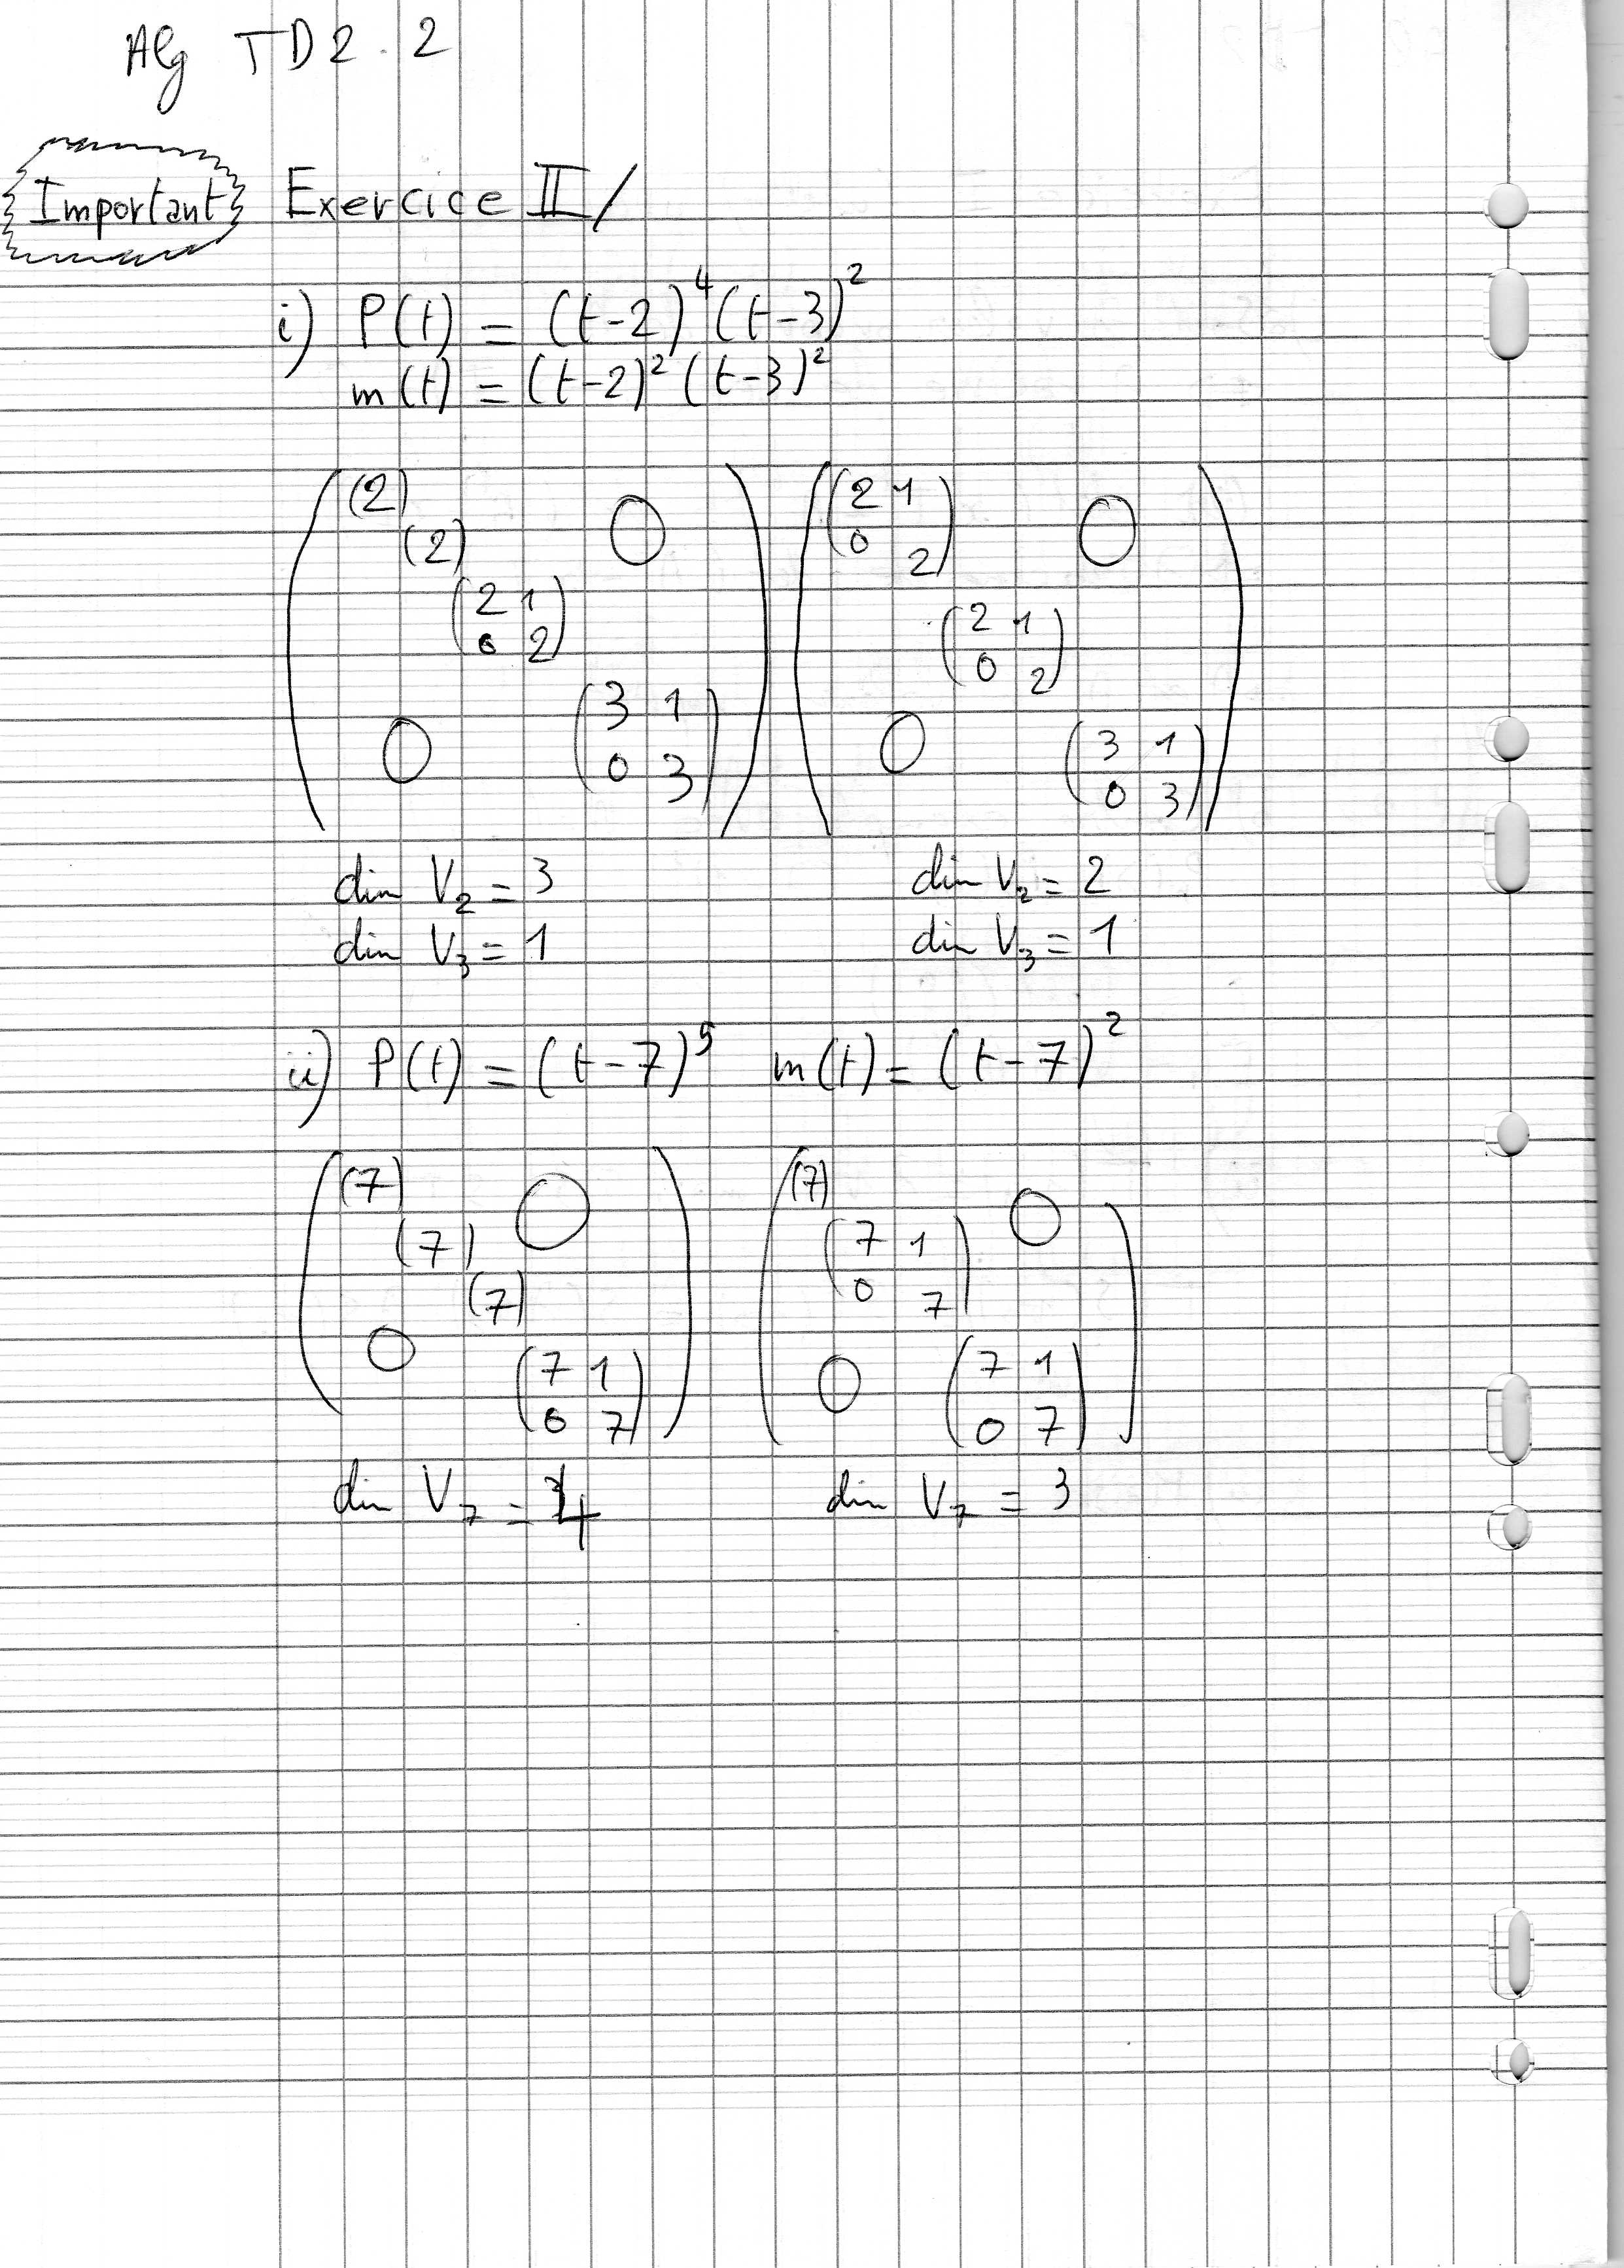 Alg TD2.2
Important Exercice II/
i) P(t) = (t-2)^4 (t-3)^2
m(t) = (t-2)^2 (t-3)^2
(2) 0 (2 1 0
(2) 0 2)
(2 1 (2 1
0 2) 0 2)
0 (3 1 0 (3 1
0 3) 0 3)
dim V_2 = 3 dim V_2 = 2
dim V_3 = 1 dim V_3 = 1
ii) P(t) = (t-7)^5 m(t) = (t-7)^2
(7) 0 (7) 0
(7) (7 1
(7) 0 7)
0 (7 1 0 (7 1
0 7) 0 7)
dim V_7 = 4 dim V_7 = 3